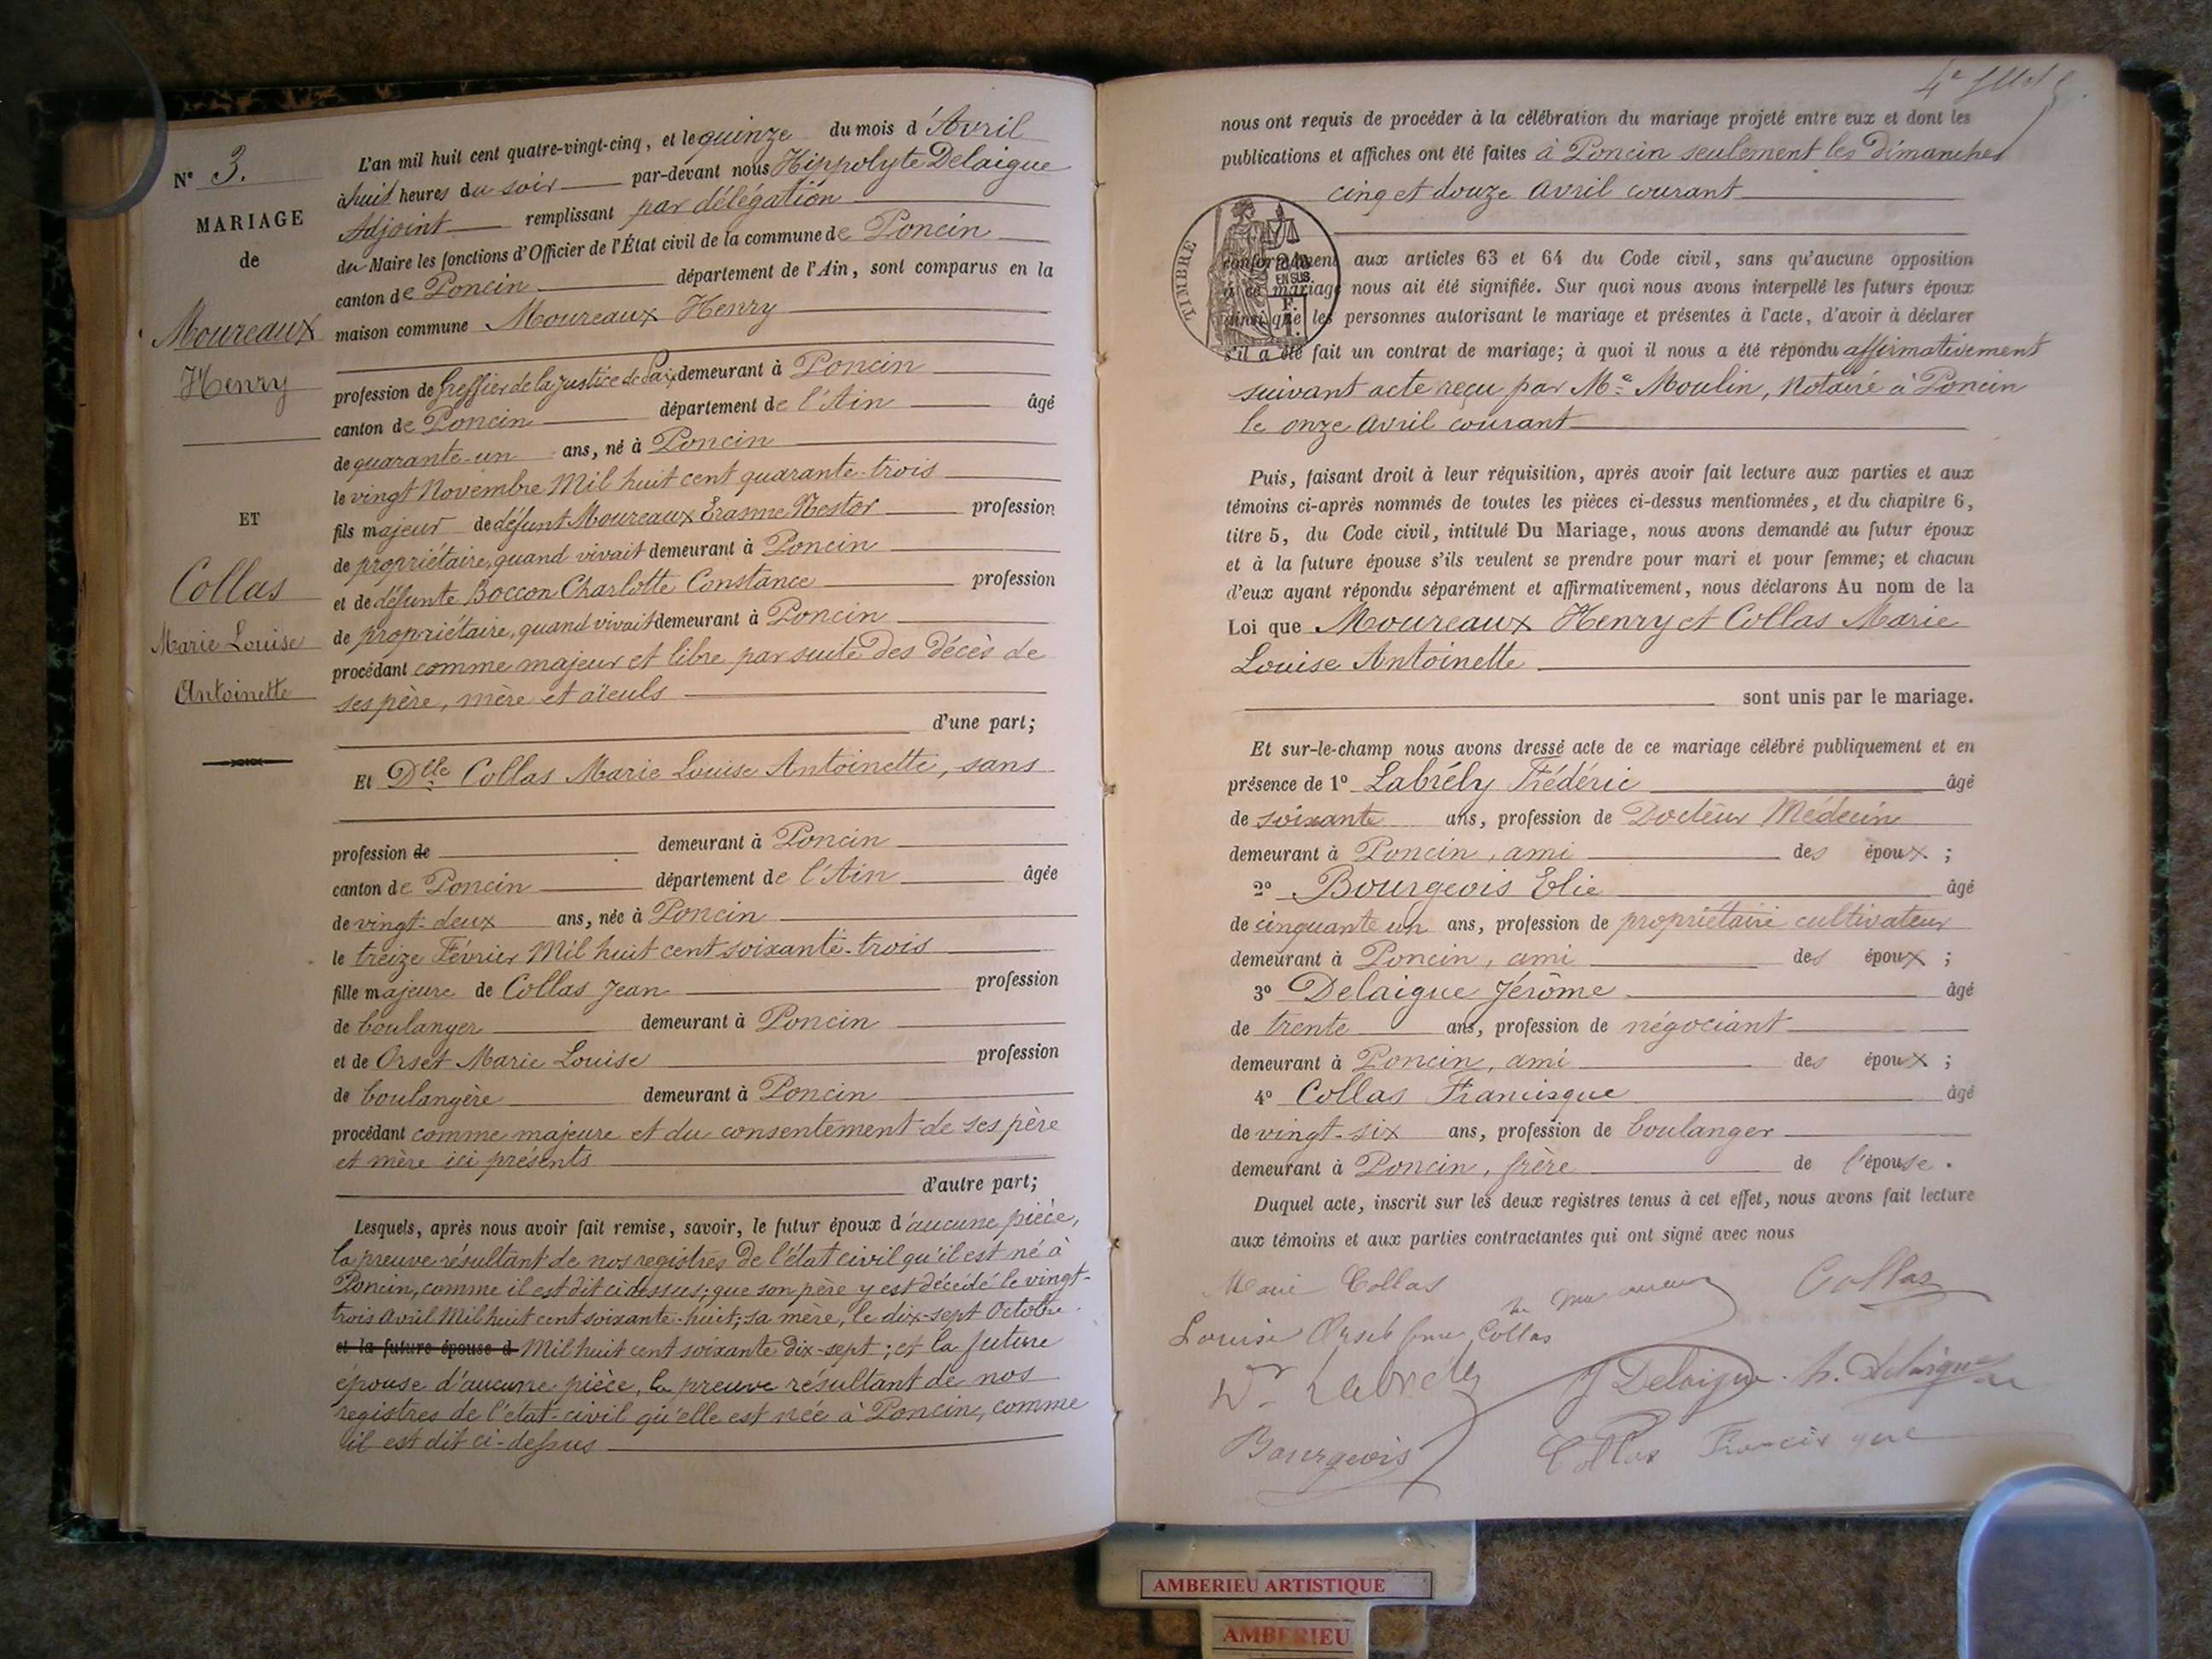 N° 3.
MARIAGE
de
Moureaux
Henry
ET
Collas
Marie Louise
Antoinette
L'an mil huit cent quatre-vingt-cinq, et le quinze du mois d'Avril
à huit heures du soir par-devant nous Hippolyte Delaigue
Adjoint remplissant par délégation
du Maire les fonctions d'Officier de l'État civil de la commune de Poncin
canton de Poncin département de l'Ain, sont comparus en la
maison commune Moureaux Henry
profession de Greffier de la justice de Paix demeurant à Poncin
canton de Poncin département de l'Ain âgé
de quarante-un ans, né à Poncin
le vingt Novembre Mil huit cent quarante-trois
fils majeur de défunt Moureaux Erasme Nestor profession
de propriétaire, quand vivait demeurant à Poncin
et de défunte Boccon Charlotte Constance profession
de propriétaire, quand vivait demeurant à Poncin
procédant comme majeur et libre par suite des décès de
ses père, mère et aïeuls
d'une part;
Et Dlle Collas Marie Louise Antoinette, sans
profession de demeurant à Poncin
canton de Poncin département de l'Ain âgée
de vingt-deux ans, née à Poncin
le treize Février Mil huit cent soixante-trois
fille majeure de Collas Jean profession
de boulanger demeurant à Poncin
et de Orset Marie Louise profession
de boulangère demeurant à Poncin
procédant comme majeure et du consentement de ses père
et mère ici présents
d'autre part;
Lesquels, après nous avoir fait remise, savoir, le futur époux d'aucune pièce,
la preuve résultant de nos registres de l'état civil qu'il est né à
Poncin, comme il est dit ci dessus; que son père y est décédé le vingt-
trois avril Mil huit cent soixante-huit; sa mère, le dix-sept Octobre
et la future épouse d Mil huit cent soixante dix-sept; et la future
épouse d'aucune pièce, la preuve résultant de nos
registres de l'état-civil qu'elle est née à Poncin, comme
il est dit ci-dessus
4e
nous ont requis de procéder à la célébration du mariage projeté entre eux et dont les
publications et affiches ont été faites à Poncin seulement les Dimanches
cinq et douze avril courant
TIMBRE
EN SUS
conformément aux articles 63 et 64 du Code civil, sans qu'aucune opposition
à ce mariage nous ait été signifiée. Sur quoi nous avons interpellé les futurs époux
ainsi que les personnes autorisant le mariage et présentes à l'acte, d'avoir à déclarer
s'il a été fait un contrat de mariage; à quoi il nous a été répondu affirmativement
suivant acte reçu par Me Moulin, Notaire à Poncin
le onze avril courant
Puis, faisant droit à leur réquisition, après avoir fait lecture aux parties et aux
témoins ci-après nommés de toutes les pièces ci-dessus mentionnées, et du chapitre 6,
titre 5, du Code civil, intitulé Du Mariage, nous avons demandé au futur époux
et à la future épouse s'ils veulent se prendre pour mari et pour femme; et chacun
d'eux ayant répondu séparément et affirmativement, nous déclarons Au nom de la
Loi que Moureaux Henry et Collas Marie
Louise Antoinette
sont unis par le mariage.
Et sur-le-champ nous avons dressé acte de ce mariage célébré publiquement et en
présence de 1° Labrély Frédéric âgé
de soixante ans, profession de Docteur Médecin
demeurant à Poncin, ami des époux;
2° Bourgeois Elie âgé
de cinquante un ans, profession de propriétaire cultivateur
demeurant à Poncin, ami des époux;
3° Delaigue Jérôme âgé
de trente ans, profession de négociant
demeurant à Poncin, ami des époux;
4° Collas Francisque âgé
de vingt-six ans, profession de boulanger
demeurant à Poncin, frère de l'épouse.
Duquel acte, inscrit sur les deux registres tenus à cet effet, nous avons fait lecture
aux témoins et aux parties contractantes qui ont signé avec nous
Marie Collas
Collas
Louise Orset Collas
Dr Labrély
J Delaigue. h. Delaigue
Bourgeois
Collas Francisque
AMBERIEU ARTISTIQUE
AMBERIEU